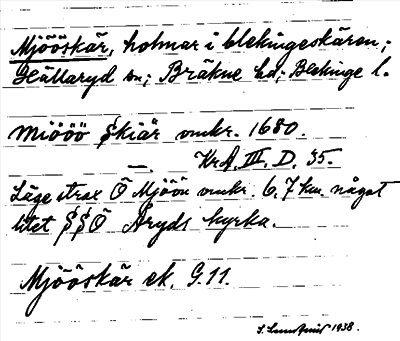 Mjööskär, holmar i blekingeskären;
Hällaryd sn; Bräkne hd; Blekinge l.
Miööö Skiär omkr. 1680.
— KrA. III. D. 35.
Läge strax Ö Mjöön omkr. 6,7 km. något
litet SSÖ Åryds kyrka.
Mjööskär ek. G.11.
1938.